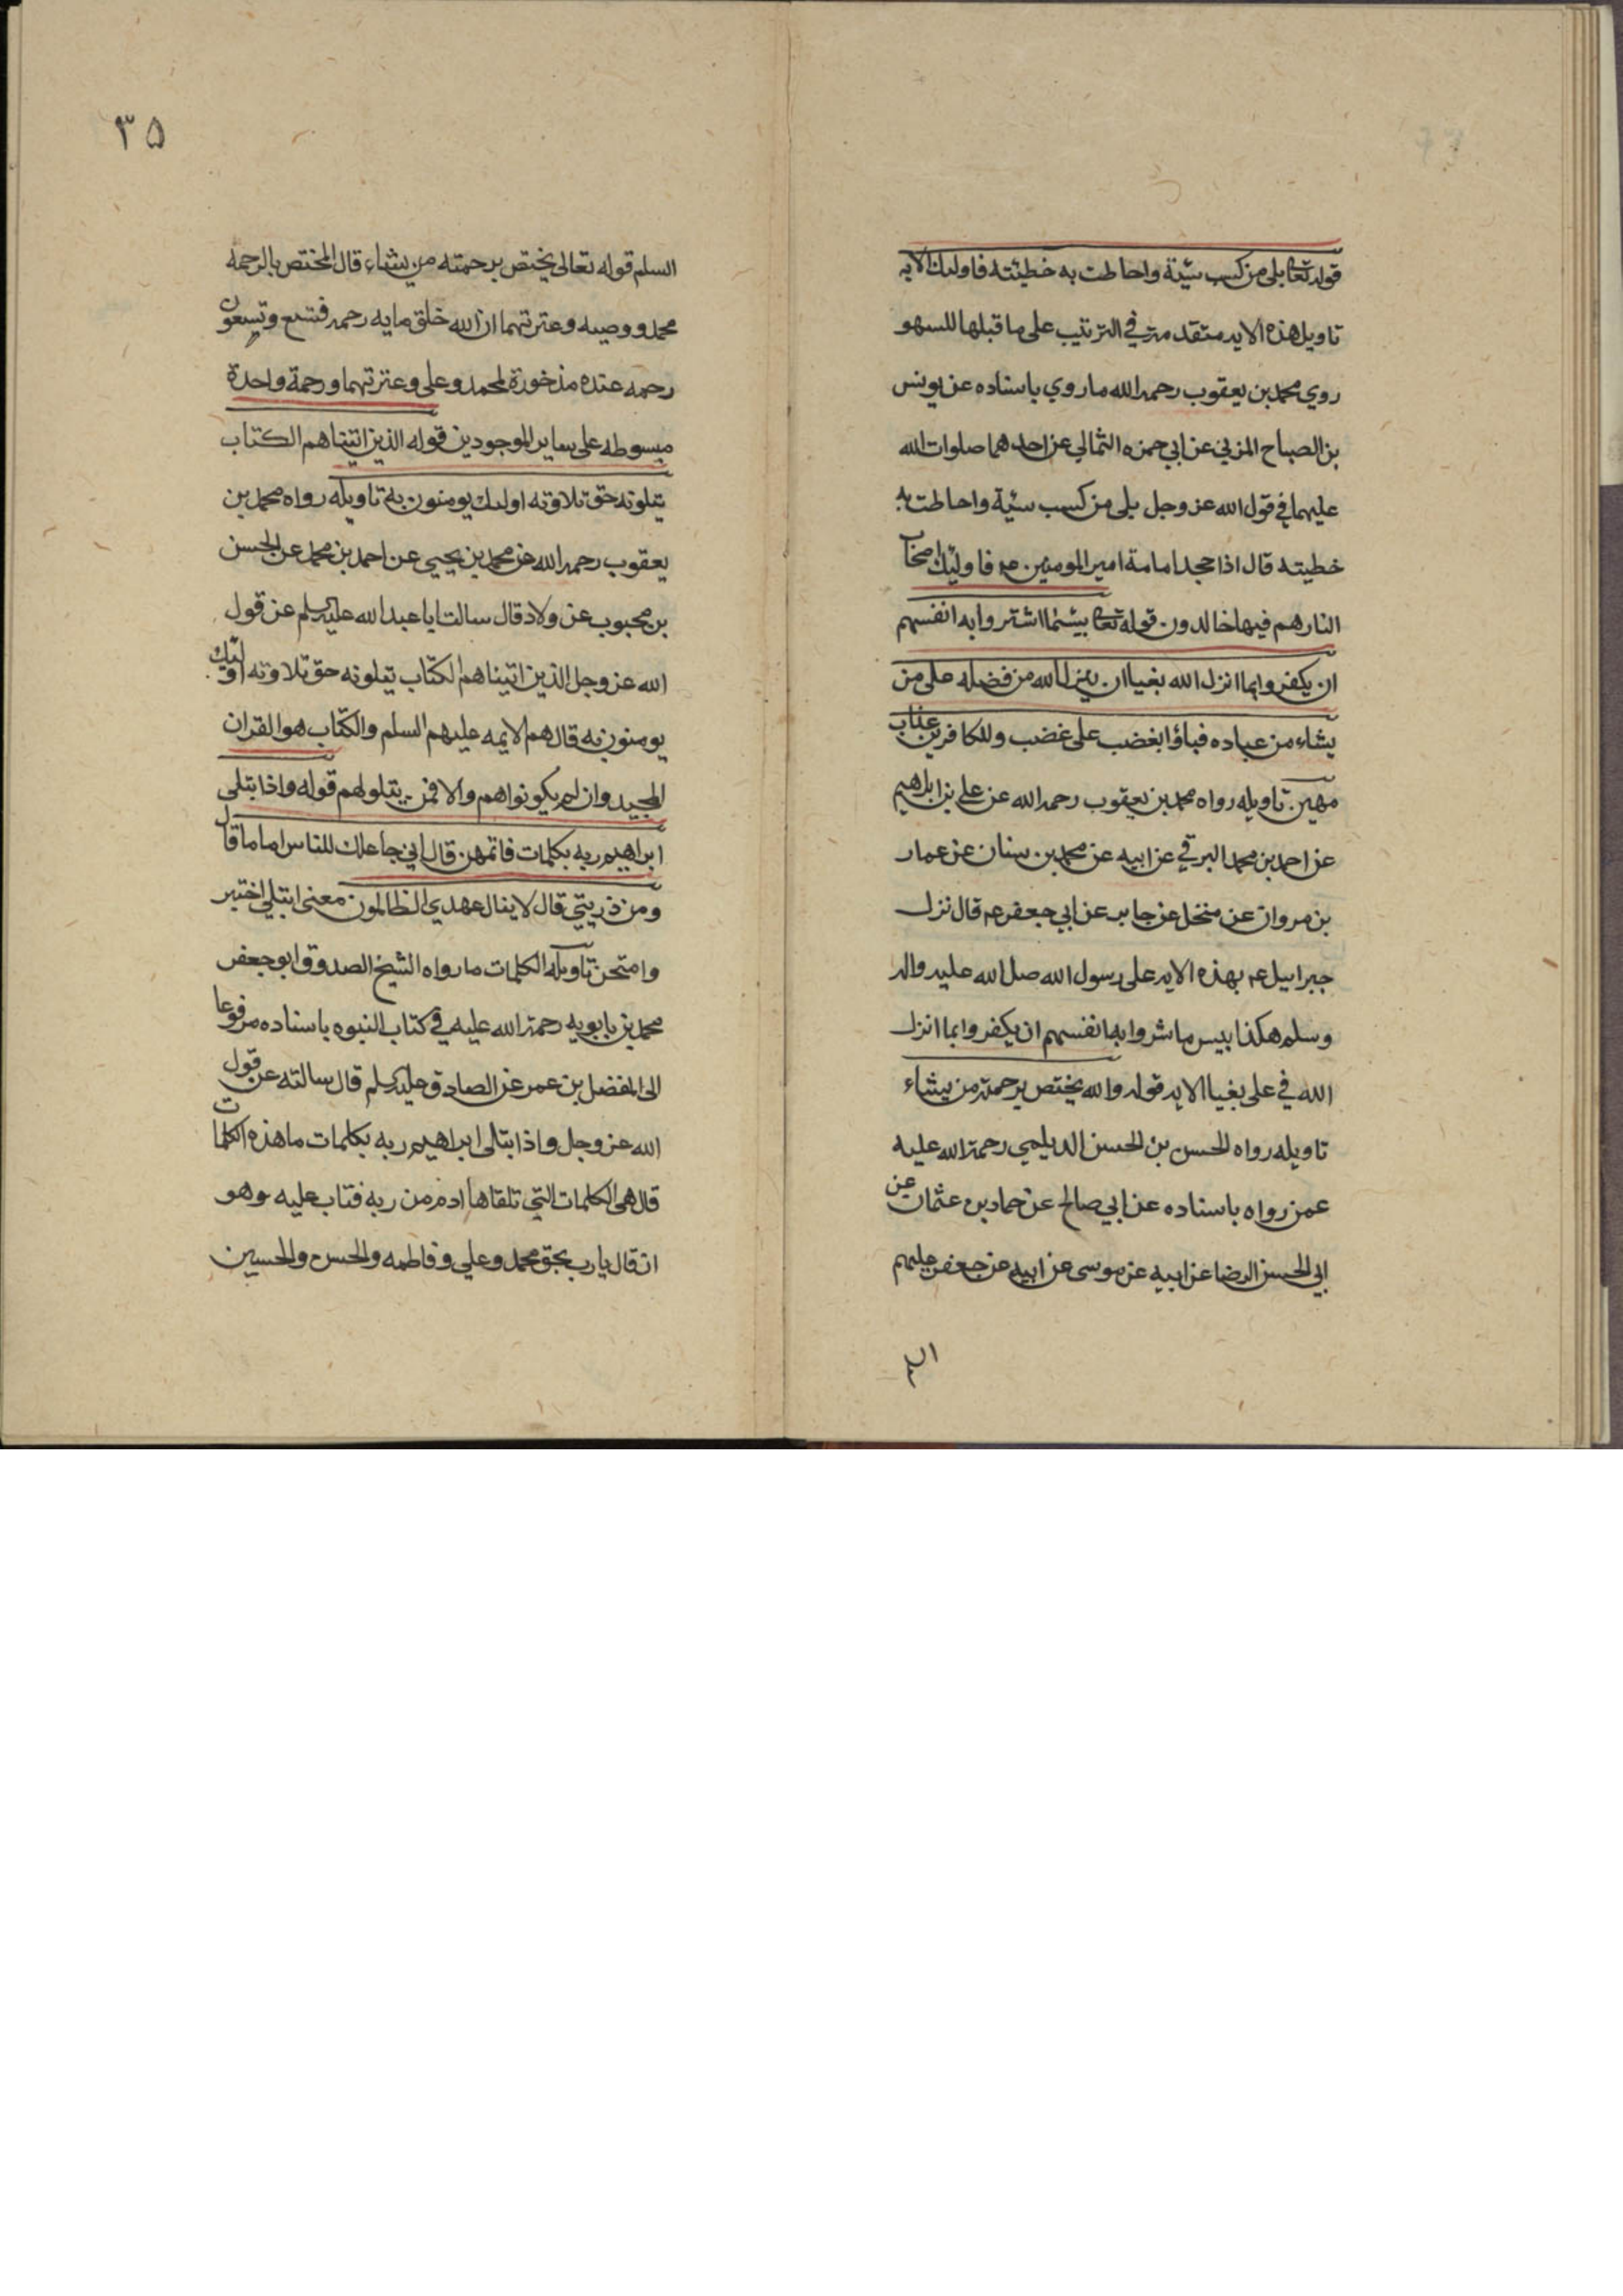 قوله تعالى بلى من كسب سيئة واحاطت به خطيئته فاولئك الايه
تاويل هذه الايه متقدمة في الترتيب على ما قبلها للسهو
روي محمد بن يعقوب رحمه الله ما روي باسناده عن يونس
بن الصباح المزني عن ابي حمزه الثمالي عن احدهما صلوات الله
عليهما في قول الله عز وجل بلى من كسب سيئة واحاطت به
خطيته قال اذا جحد امامة امير المومنين عم فاوليك اصحاب
النار هم فيها خالدون قوله تعالى بيسما اشتروا به انفسهم
ان يكفروا بما انزل الله بغيا ان ينزل الله من فضله على من
يشاء من عباده فباؤا بغضب على غضب وللكافرين عذاب
مهين تاويله رواه محمد بن يعقوب رحمه الله عن علي بن ابراهيم
عن احمد بن محمد البرقي عن ابيه عن محمد بن سنان عن عمار
بن مروان عن منخل عن جابر عن ابي جعفر عم قال نزل
جبراييل عم بهذه الايه على رسول الله صلى الله عليه واله
وسلم هكذا بيس ما شروا به انفسهم ان يكفروا بما انزل
الله في علي بغيا الايه قوله والله يختص برحمته من يشاء
تاويله رواه الحسن بن الحسن الديلمي رحمة الله عليه
عمن رواه باسناده عن ابي صالح عن حماد بن عثمان عن
ابي الحسن الرضا عن ابيه عن موسى عن ابيه عن جعفر عليهم
٣٥
السلم قوله تعالى يختص برحمته من يشاء قال المختص بالرحمه
محمد ووصيه وعترتهما ان الله خلق مايه رحمه فتسع وتسعون
رحمه عنده مذخورة لمحمد وعلي وعترتهما ورحمة واحدة
مبسوطه على ساير الموجودين قوله الذين اتيناهم الكتاب
يتلونه حق تلاوته اولئك يومنون به تاويله رواه محمد بن
يعقوب رحمه الله عن محمد بن يحيى عن احمد بن محمد عن الحسن
بن محبوب عن ولاد قال سالت ابا عبد الله عليه السلم عن قول
الله عز وجل الذين اتيناهم الكتاب يتلونه حق تلاوته اولئك
يومنون به قال هم الايمه عليهم السلم والكتاب هو القران
المجيد وان لم يكونوا هم والا فمن يتلو لهم قوله واذ ابتلى
ابراهيم ربه بكلمات فاتمهن قال اني جاعلك للناس اماما قال
ومن ذريتي قال لا ينال عهدي الظالمون معنى ابتلي اختبر
وامتحن تاويله الكلمات ما رواه الشيخ الصدوق ابو جعفر
محمد بن بابويه رحمة الله عليه في كتاب النبوه باسناده مرفوعا
الى المفضل بن عمر عن الصادق عليه السلم قال سالته عن قول
الله عز وجل واذ ابتلى ابراهيم ربه بكلمات ما هذه الكلمات
قال هي الكلمات التي تلقاها ادم من ربه فتاب عليه وهو
ان قال يا رب بحق محمد وعلي وفاطمه والحسن والحسين